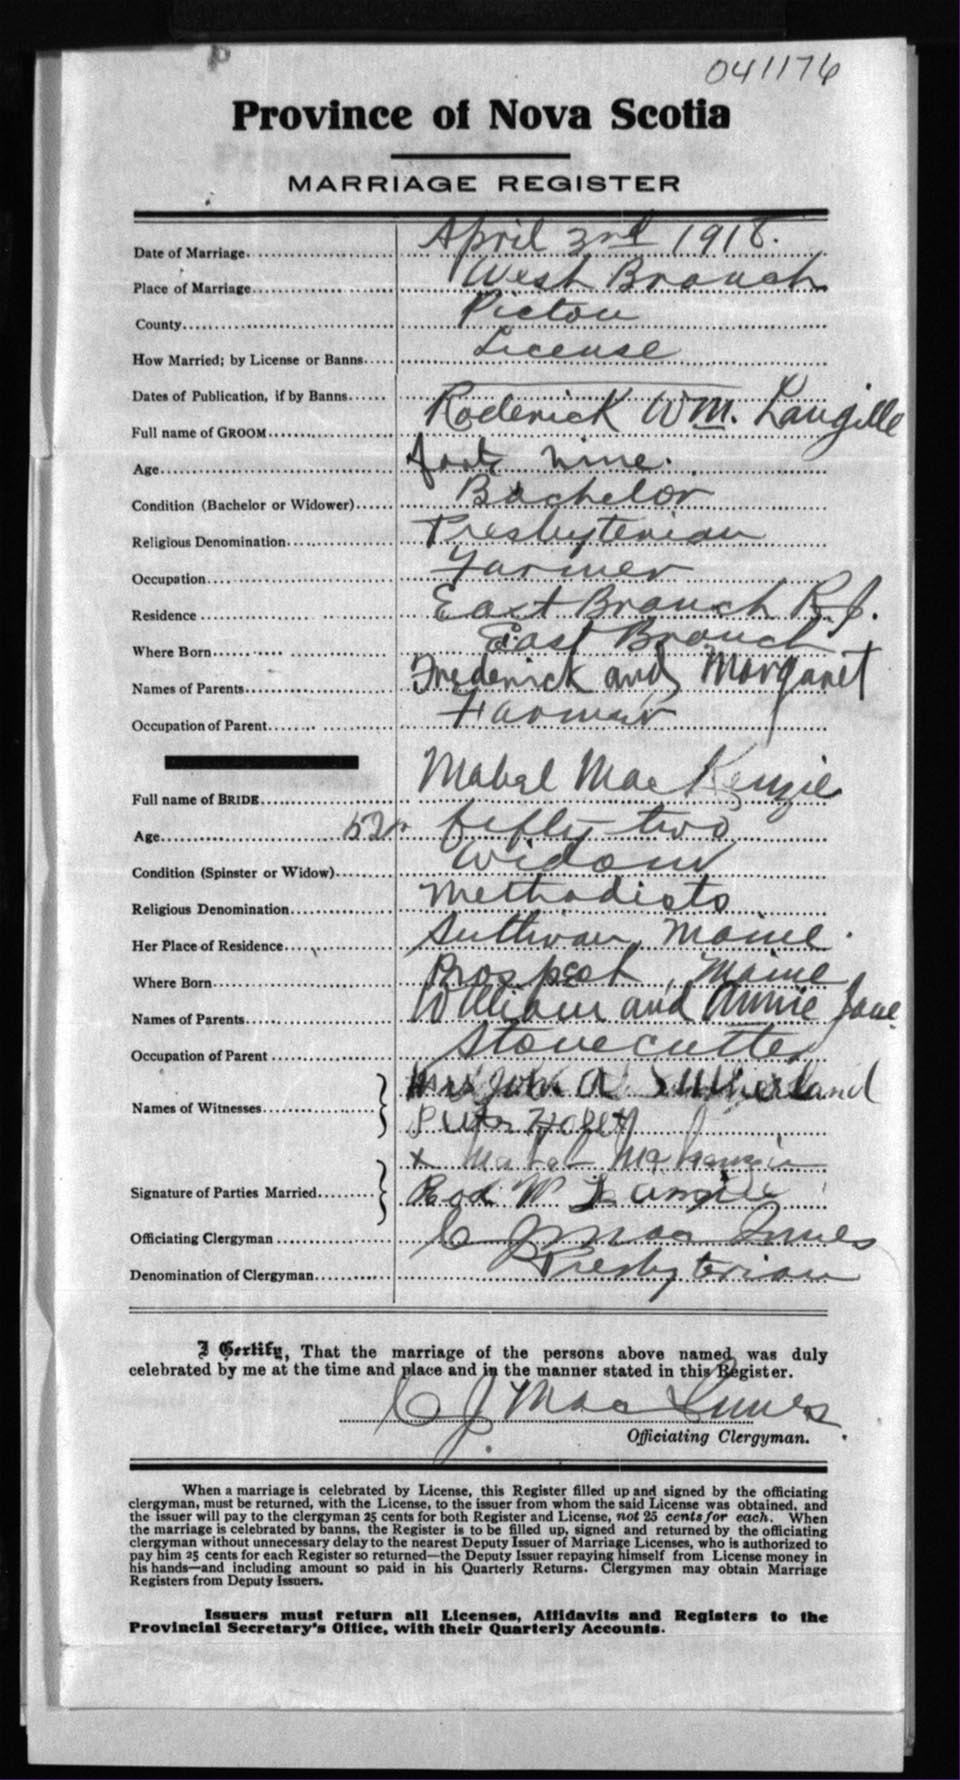 041176
Province of Nova Scotia
MARRIAGE REGISTER
Date of Marriage April 3rd 1918.
Place of Marriage West Branch
County Pictou
How Married; by License or Banns License
Dates of Publication, if by Banns
Full name of GROOM Roderick Wm. Langille
Age nine.
Condition (Bachelor or Widower) Bachelor
Religious Denomination Presbyterian
Occupation Farmer
Residence East Branch R.J.
Where Born East Branch
Names of Parents Frederick and Margaret
Occupation of Parent Farmer
Full name of BRIDE Mabel MacKenzie
Age 52 fifty-two
Condition (Spinster or Widow) Widow
Religious Denomination Methodists
Her Place of Residence Sullivan, Maine.
Where Born Prospect, Maine
Names of Parents William and Annie Jane
Occupation of Parent Stonecutter
Names of Witnesses Mrs John A Sutherland
Peter
Signature of Parties Married x Mabel McKenzie
Rod W Langille
Officiating Clergyman C J MacInnes
Denomination of Clergyman Presbyterian
I Certify, That the marriage of the persons above named was duly
celebrated by me at the time and place and in the manner stated in this Register.
C J. MacInnes.
Officiating Clergyman.
When a marriage is celebrated by License, this Register filled up and signed by the officiating
clergyman, must be returned, with the License, to the issuer from whom the said License was obtained, and
the issuer will pay to the clergyman 25 cents for both Register and License, not 25 cents for each. When
the marriage is celebrated by banns, the Register is to be filled up, signed and returned by the officiating
clergyman without unnecessary delay to the nearest Deputy Issuer of Marriage Licenses, who is authorized to
pay him 25 cents for each Register so returned—the Deputy Issuer repaying himself from License money in
his hands—and including amount so paid in his Quarterly Returns. Clergymen may obtain Marriage
Registers from Deputy Issuers.
Issuers must return all Licenses, Affidavits and Registers to the
Provincial Secretary's Office, with their Quarterly Accounts.